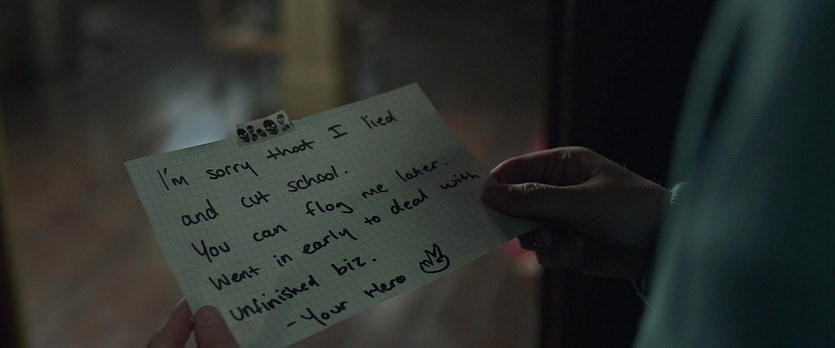 I'm sorry that I lied
and cut school.
You can flog me later.
Went in early to deal with
unfinished biz.
- Your Hero